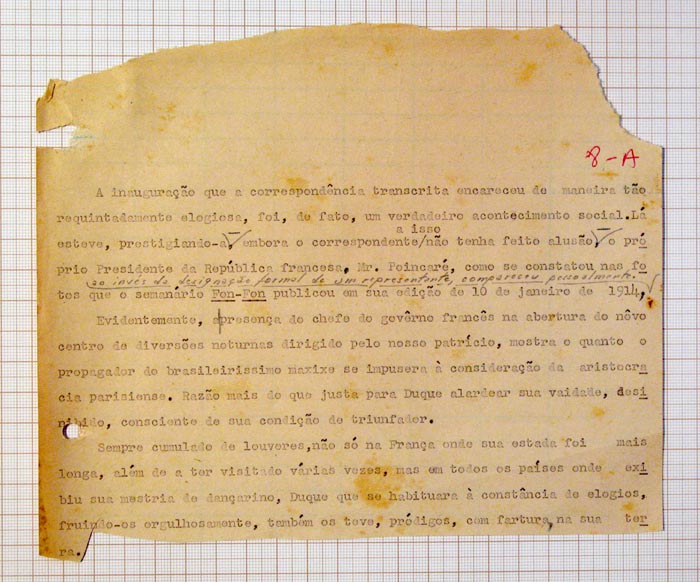 8-A
A inauguração que a correspondência transcrita encareceu de maneira tão
requintadamente elogiosa, foi, de fato, um verdadeiro acontecimento social.Lá
a isso
esteve, prestigiando-a, embora o correspondente/não tenha feito alusão, o pró
prio Presidente da República francesa, Mr. Poincaré, como se constatou nas fo
ao invés da designação formal de um representante, compareceu pessoalmente.
tos que o semanário Fon-Fon publicou em sua edição de 10 de janeiro de 1914,
Evidentemente, a presença do chefe do govêrno francês na abertura do nôvo
centro de diversões noturnas dirigido pelo nosso patrício, mostra o quanto o
propagador do brasileiríssimo maxixe se impusera à consideração da aristocra
cia parisiense. Razão mais do que justa para Duque alardear sua vaidade, desi
nibido, consciente de sua condição de triunfador.
Sempre cumulado de louvores,não só na França onde sua estada foi mais
longa, além de a ter visitado várias vezes, mas em todos os países onde exi
biu sua mestria de dançarino, Duque que se habituara à constância de elogios,
fruindo-os orgulhosamente, também os teve, pródigos, com fartura,na sua ter
ra.